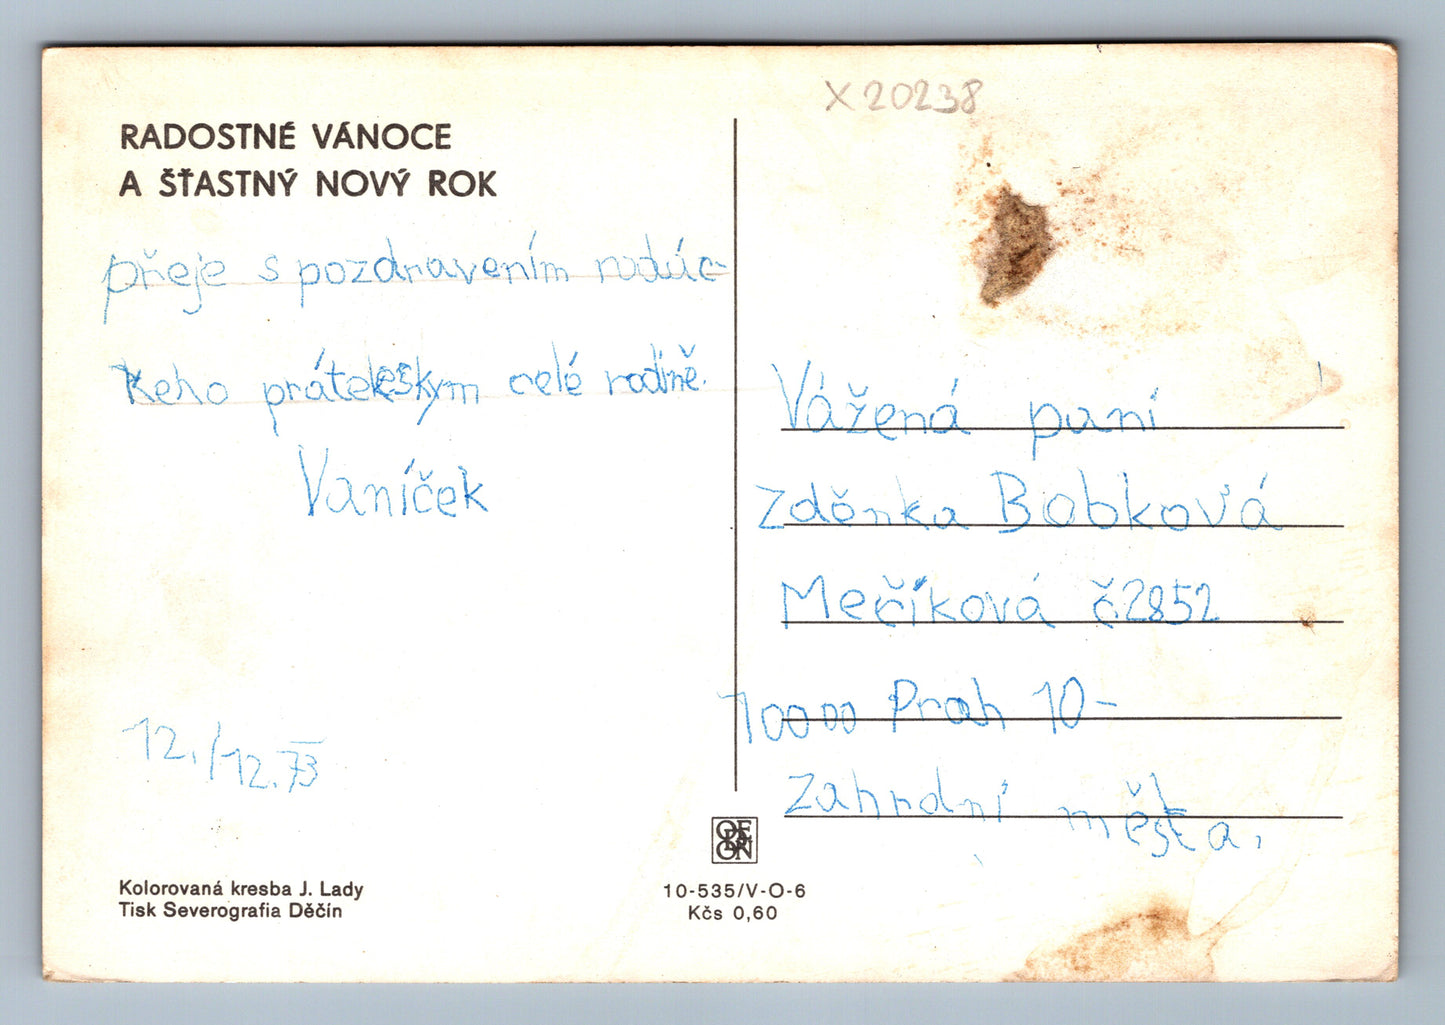 X 20238
RADOSTNÉ VÁNOCE
A ŠŤASTNÝ NOVÝ ROK
přeje s pozdravením
Keho práteleškym celé rodině.
Vaníček
12./12.73
Kolorovaná kresba J. Lady
Tisk Severografia Děčín
ODEON
10-535/V-O-6
Kčs 0,60
Vážená paní
Zděnka Bobková
Mečíková č2852
10000 Prah 10-
Zahrdní města.